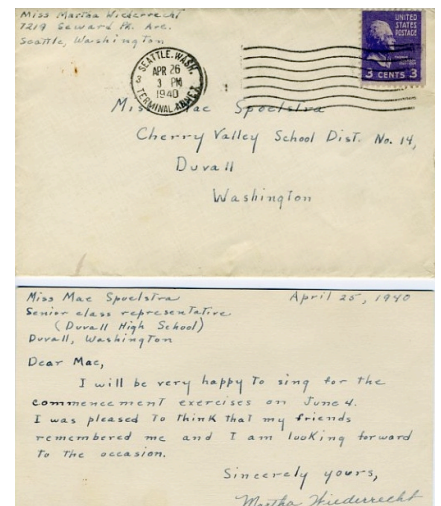 Miss Martha Wiederrecht
7219 Seward Pk. Ave.
Seattle, Washington
SEATTLE, WASH.
APR 26
3 PM
1940
TERMINAL ANNEX
3
UNITED
STATES
POSTAGE
3 CENTS 3
Miss Mae Spoelstra
Cherry Valley School Dist. No. 14,
Duvall
Washington
Miss Mae Spoelstra
April 25, 1940
Senior class representative
(Duvall High School)
Duvall, Washington
Dear Mae,
I will be very happy to sing for the
commencement exercises on June 4.
I was pleased to think that my friends
remembered me and I am looking forward
to the occasion.
Sincerely yours,
Martha Wiederrecht